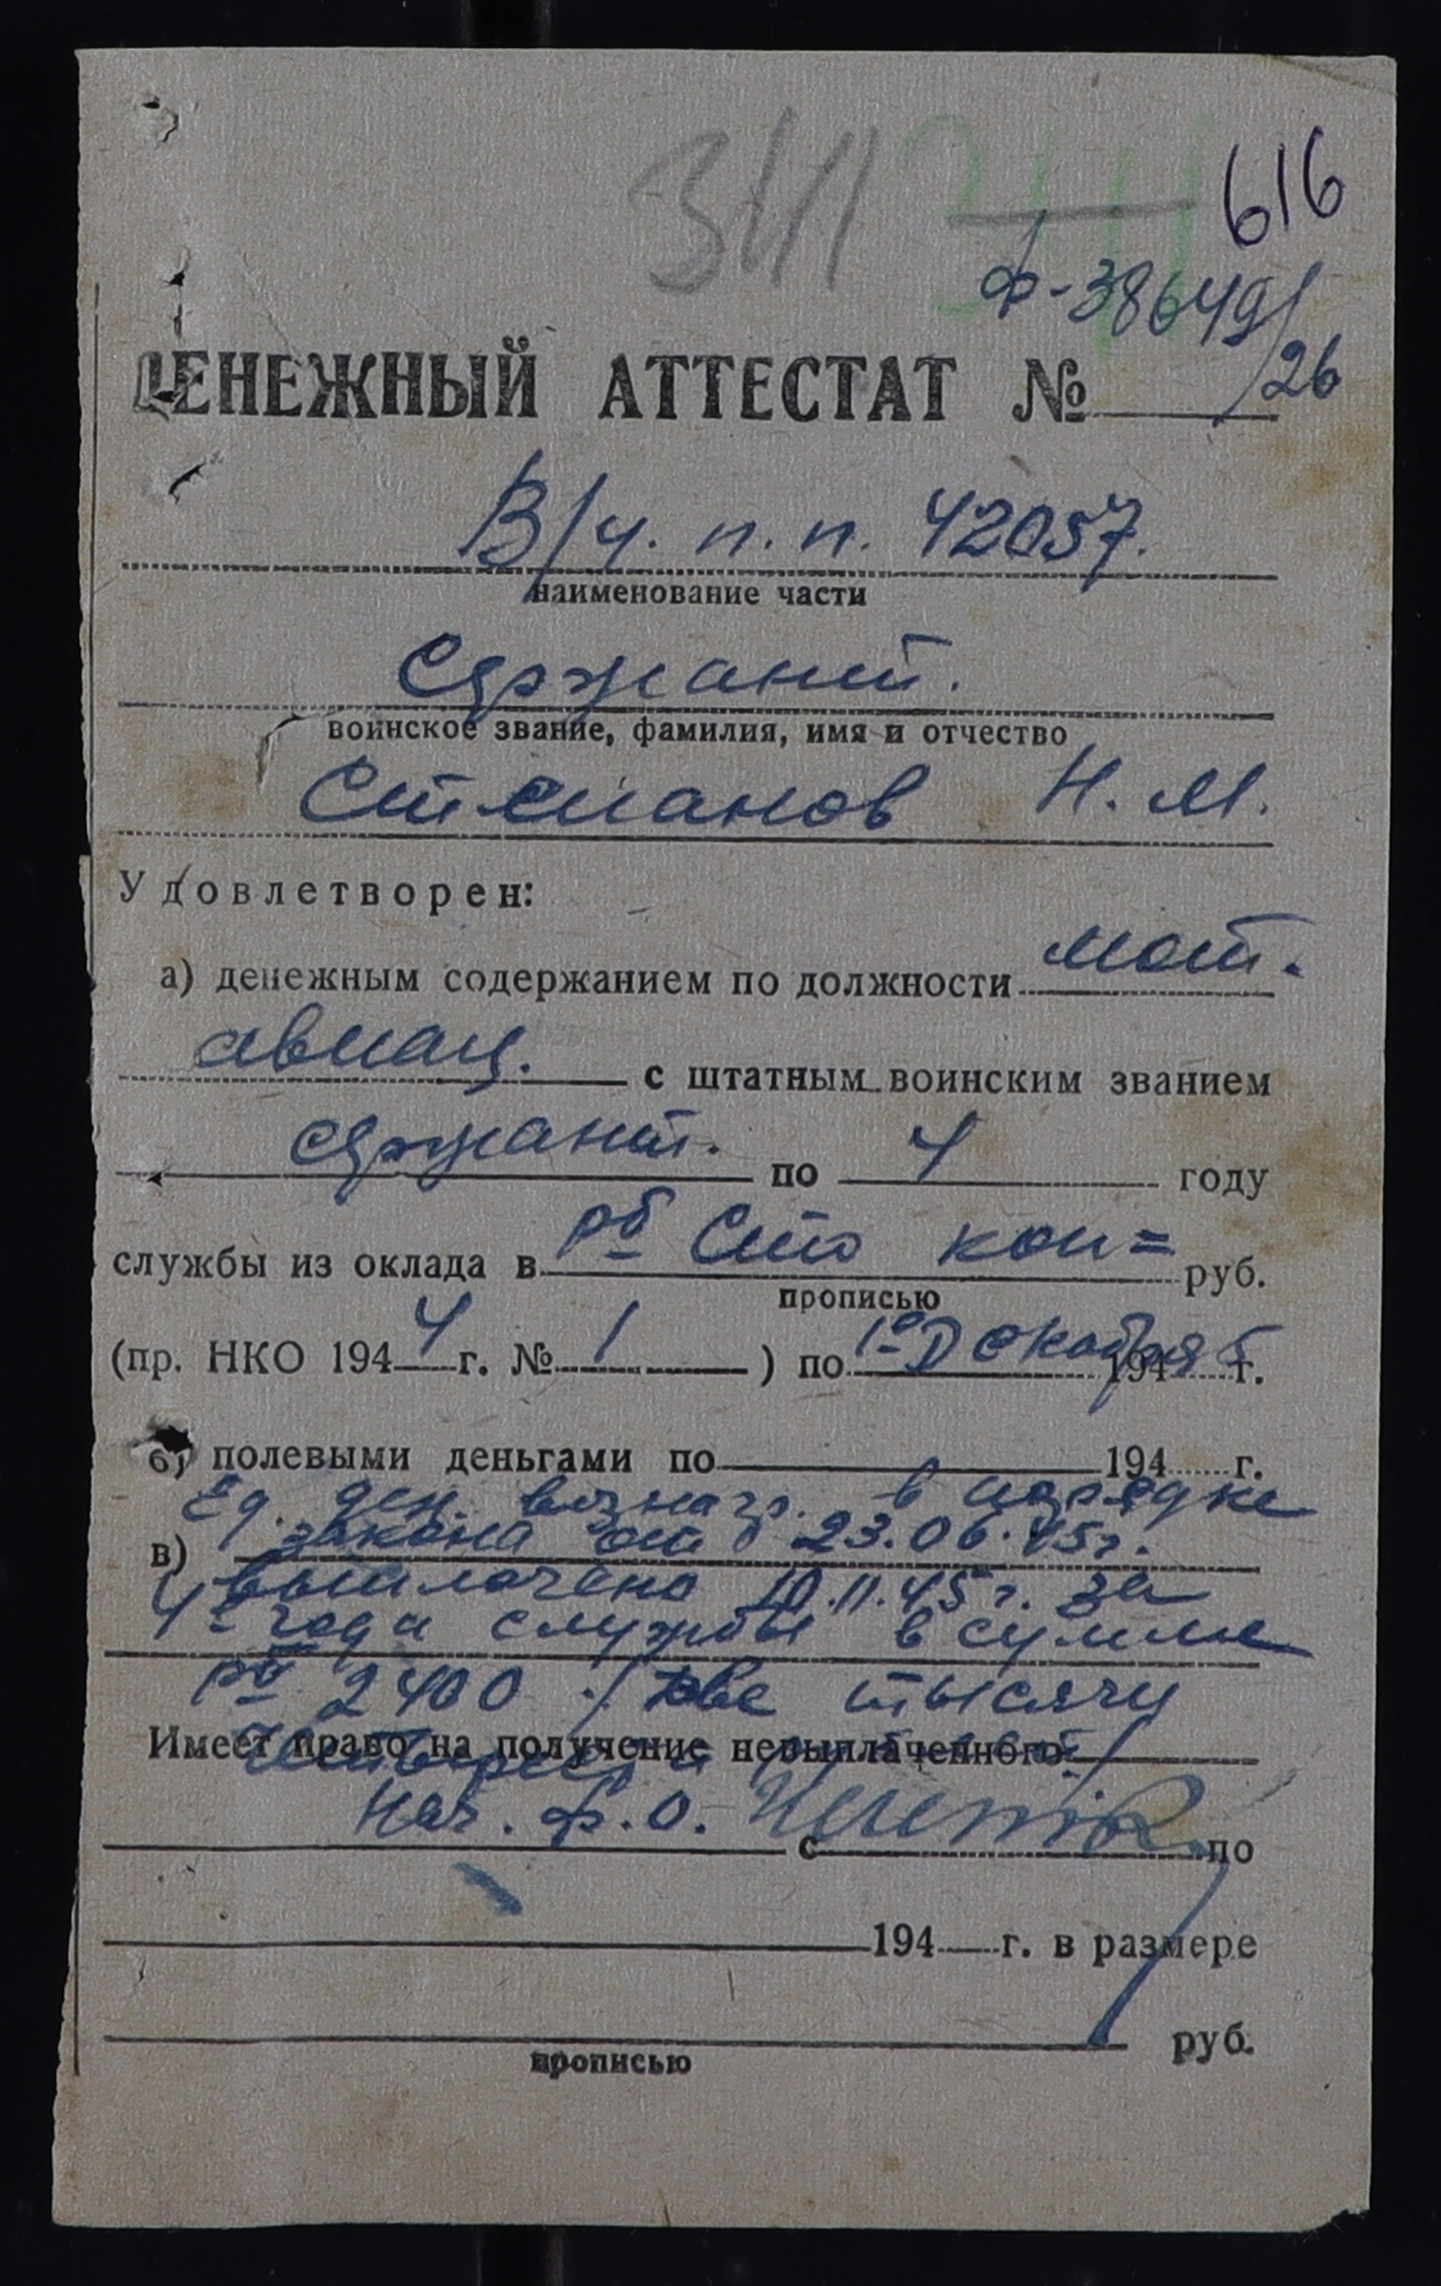 341 341 616
ф-38649/26
ДЕНЕЖНЫЙ АТТЕСТАТ №
В/ч. п. п. 42057.
наименование части
Сержант.
воинское звание, фамилия, имя и отчество
Степанов Н. М.
Удовлетворен:
а) денежным содержанием по должности мот.
авиац. с штатным воинским званием
сержант. по 4 году
службы из оклада в рб Сто коп= руб.
прописью
(пр. НКО 1944 г. № 1 ) по 1е Декабря 1945 г.
б) полевыми деньгами по 194 г.
Ед. ден. вознагр. в порядке
в) закона от 23.06.45г.
выплачено 10.11.45г. за
4 года службы в сумме
рб 2400 /две тысячи
Имеет право на получение невыплаченного:
четыреста рублей/
Нач. ф. о.
с по
194 г. в размере
руб.
прописью